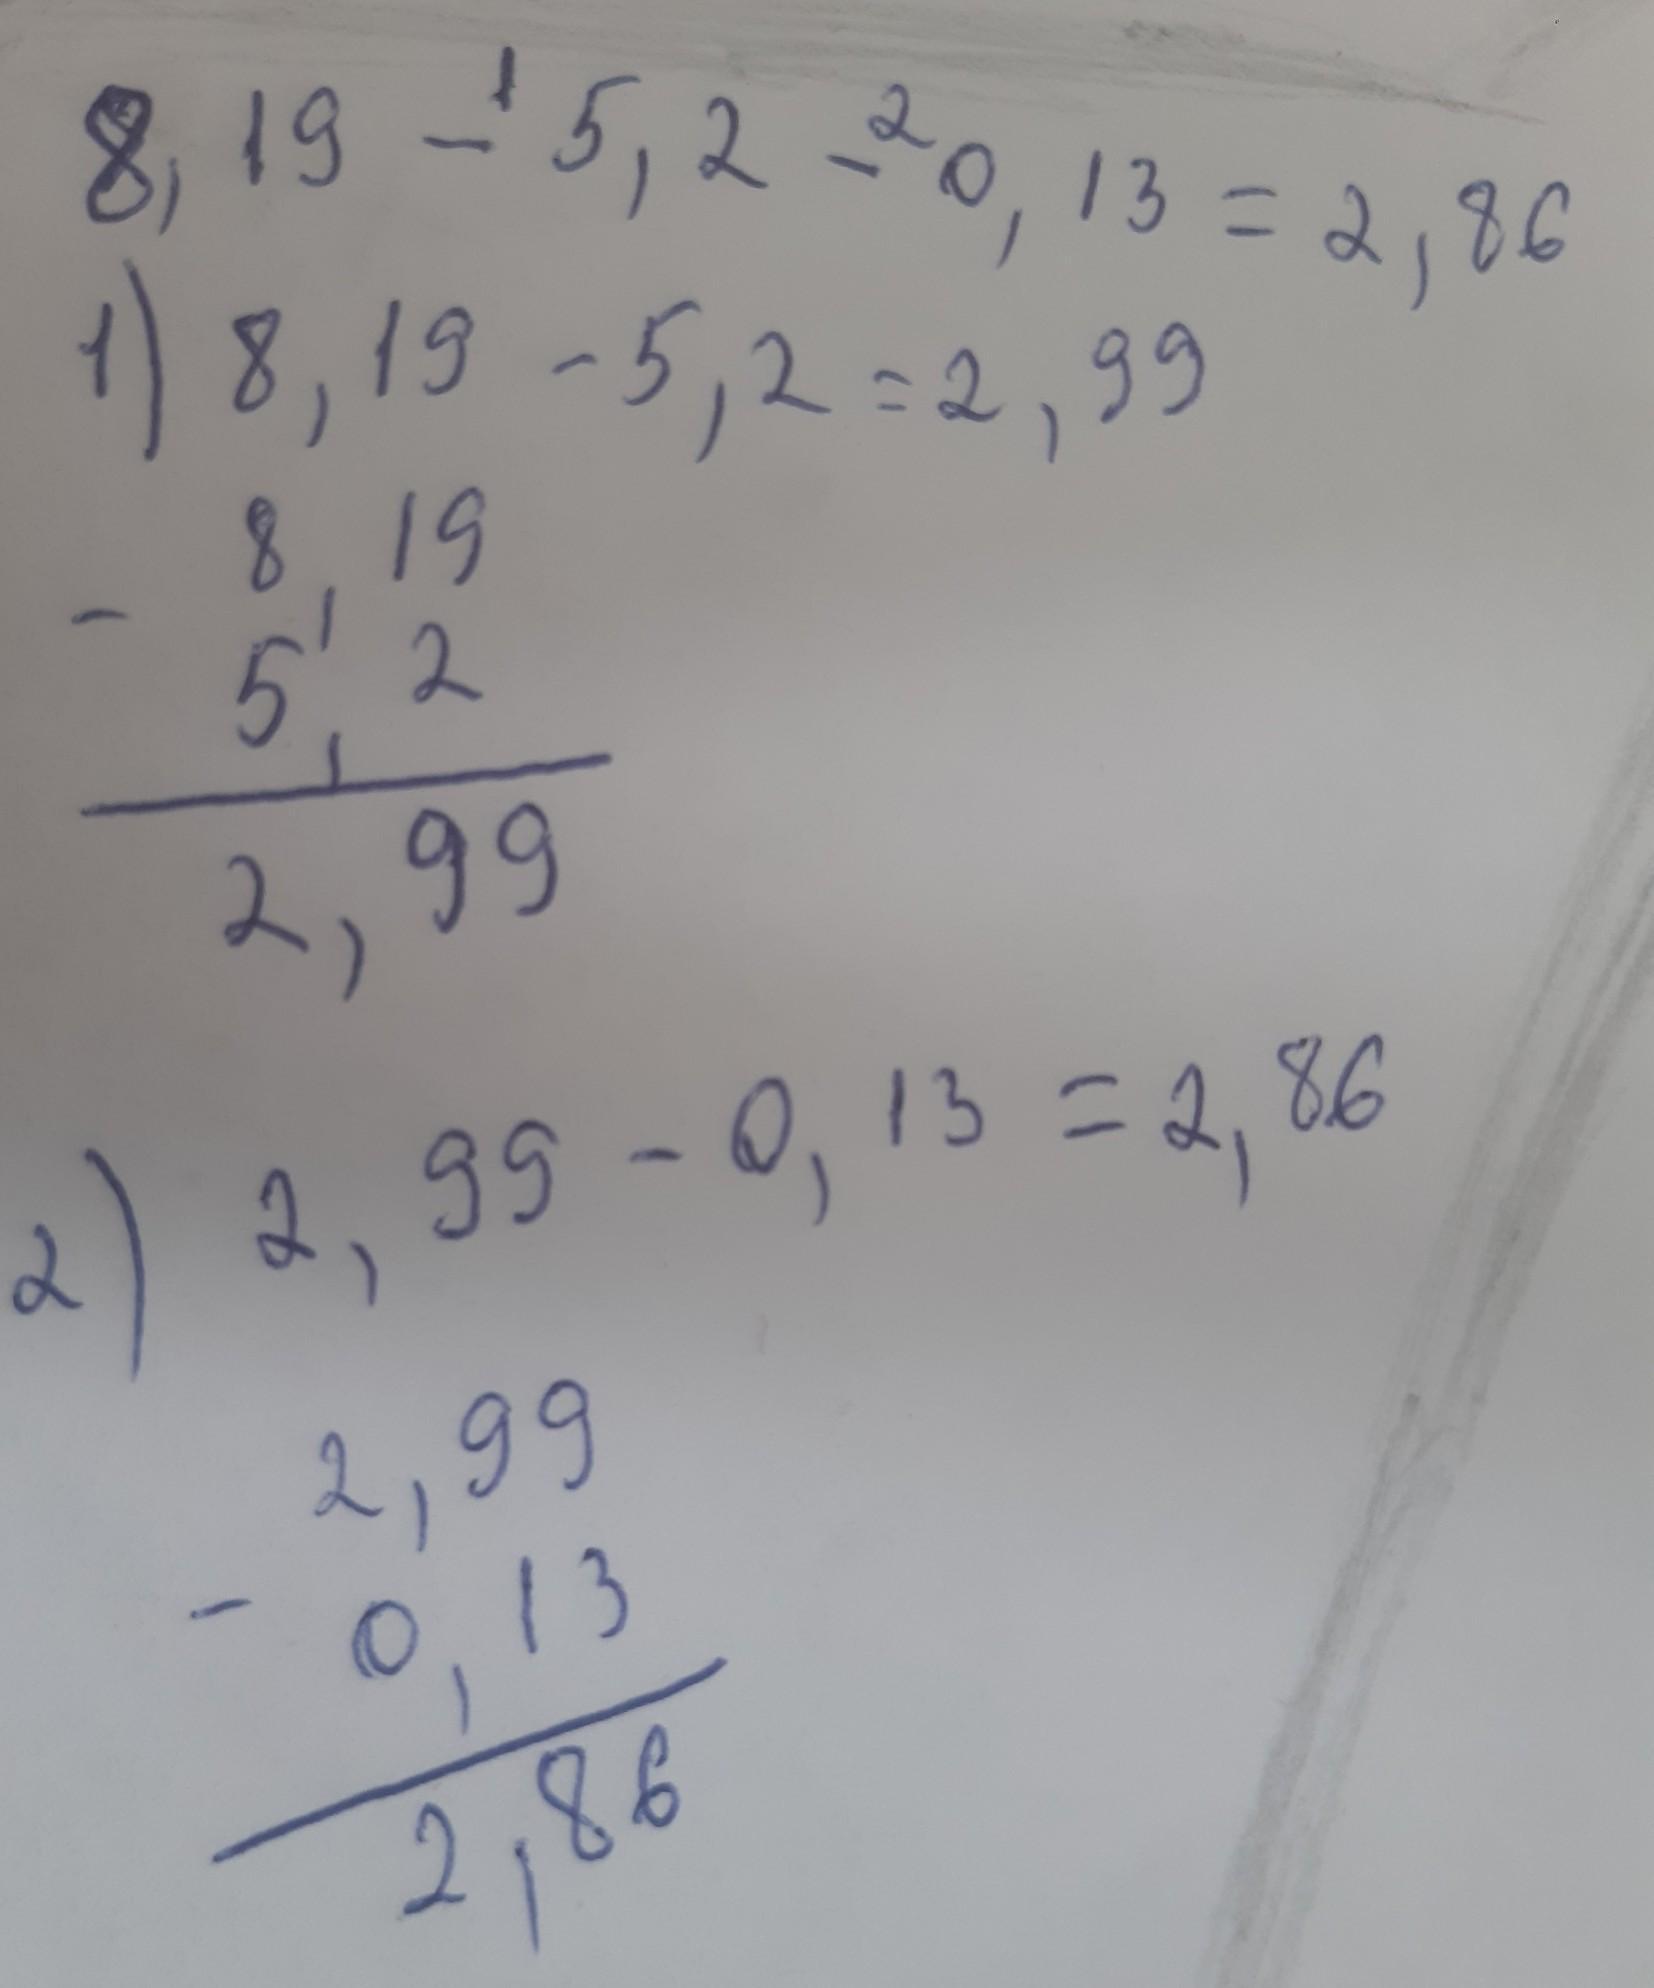 8,19 -¹ 5,2 -² 0,13 = 2,86
1) 8,19 - 5,2 = 2,99
8,19
-
5,2
2,99
2) 2,99 - 0,13 = 2,86
2,99
-
0,13
2,86